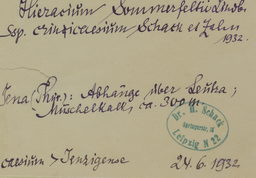 Hieracium Sommerfeltii Lindb.
ssp. crinicaesium Schack et Zahn
1932.
Jena (Thür.): Abhänge über Leutra;
Muschelkalk, ca. 300 m
Dr. H. Schack
Leipzig N 22
caesium > Jenzigense
24. 6. 1932